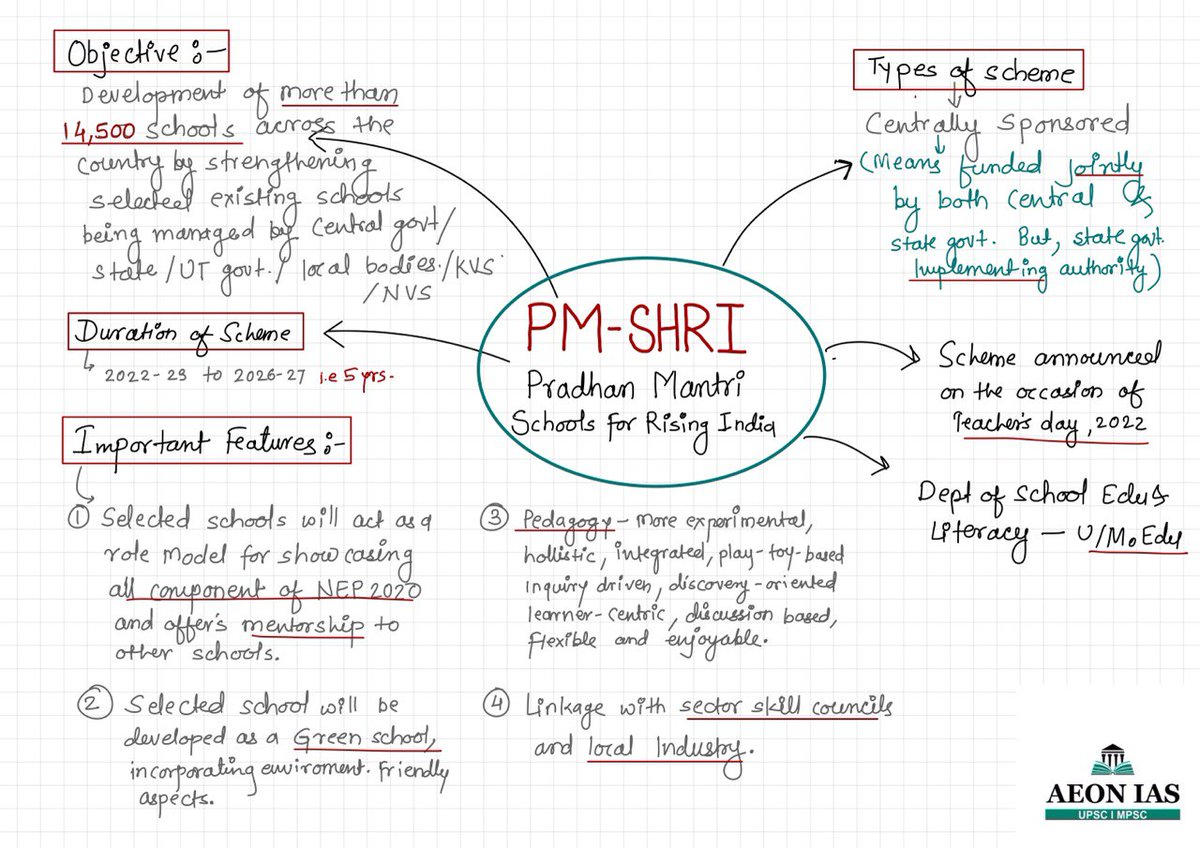 Objective :-
Development of more than
14,500 schools across the
country by strengthening
selected existing schools
being managed by Central govt/
state/UT govt./ local bodies./KVS
/NVS
Duration of Scheme
2022-23 to 2026-27 i.e 5 yrs.
Important Features :-
① Selected schools will act as a
role model for show casing
all component of NEP 2020
and offer's mentorship to
other schools.
② Selected school will be
developed as a Green school,
incorporating enviroment. friendly
aspects.
PM-SHRI
Pradhan Mantri
Schools for Rising India
③ Pedagogy - more experimental,
hollistic, integrated, play-toy-based
inquiry driven, discovery-oriented
learner-centric, discussion based,
flexible and enjoyable.
④ Linkage with sector skill councils
and local Industry.
Types of scheme
Centrally Sponsored
(Means funded jointly
by both Central &
state govt. But, state govt.
Implementing authority)
Scheme announced
on the occasion of
Teacher's day, 2022
Dept of School Edu &
Literacy - U/Mo Edu
AEON IAS
UPSC | MPSC